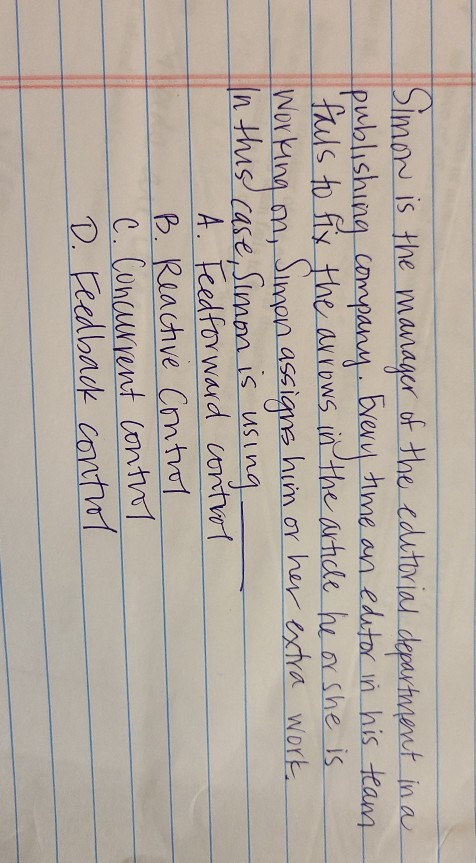 Simon is the manager of the editorial department in a
publishing company. Every time an editor in his team
fails to fix the arrows in the article he or she is
working on, Simon assigns him or her extra work.
In this case, Simon is using ______
A. Feedforward control
B. Reactive Control
C. Concurrent control
D. Feedback control